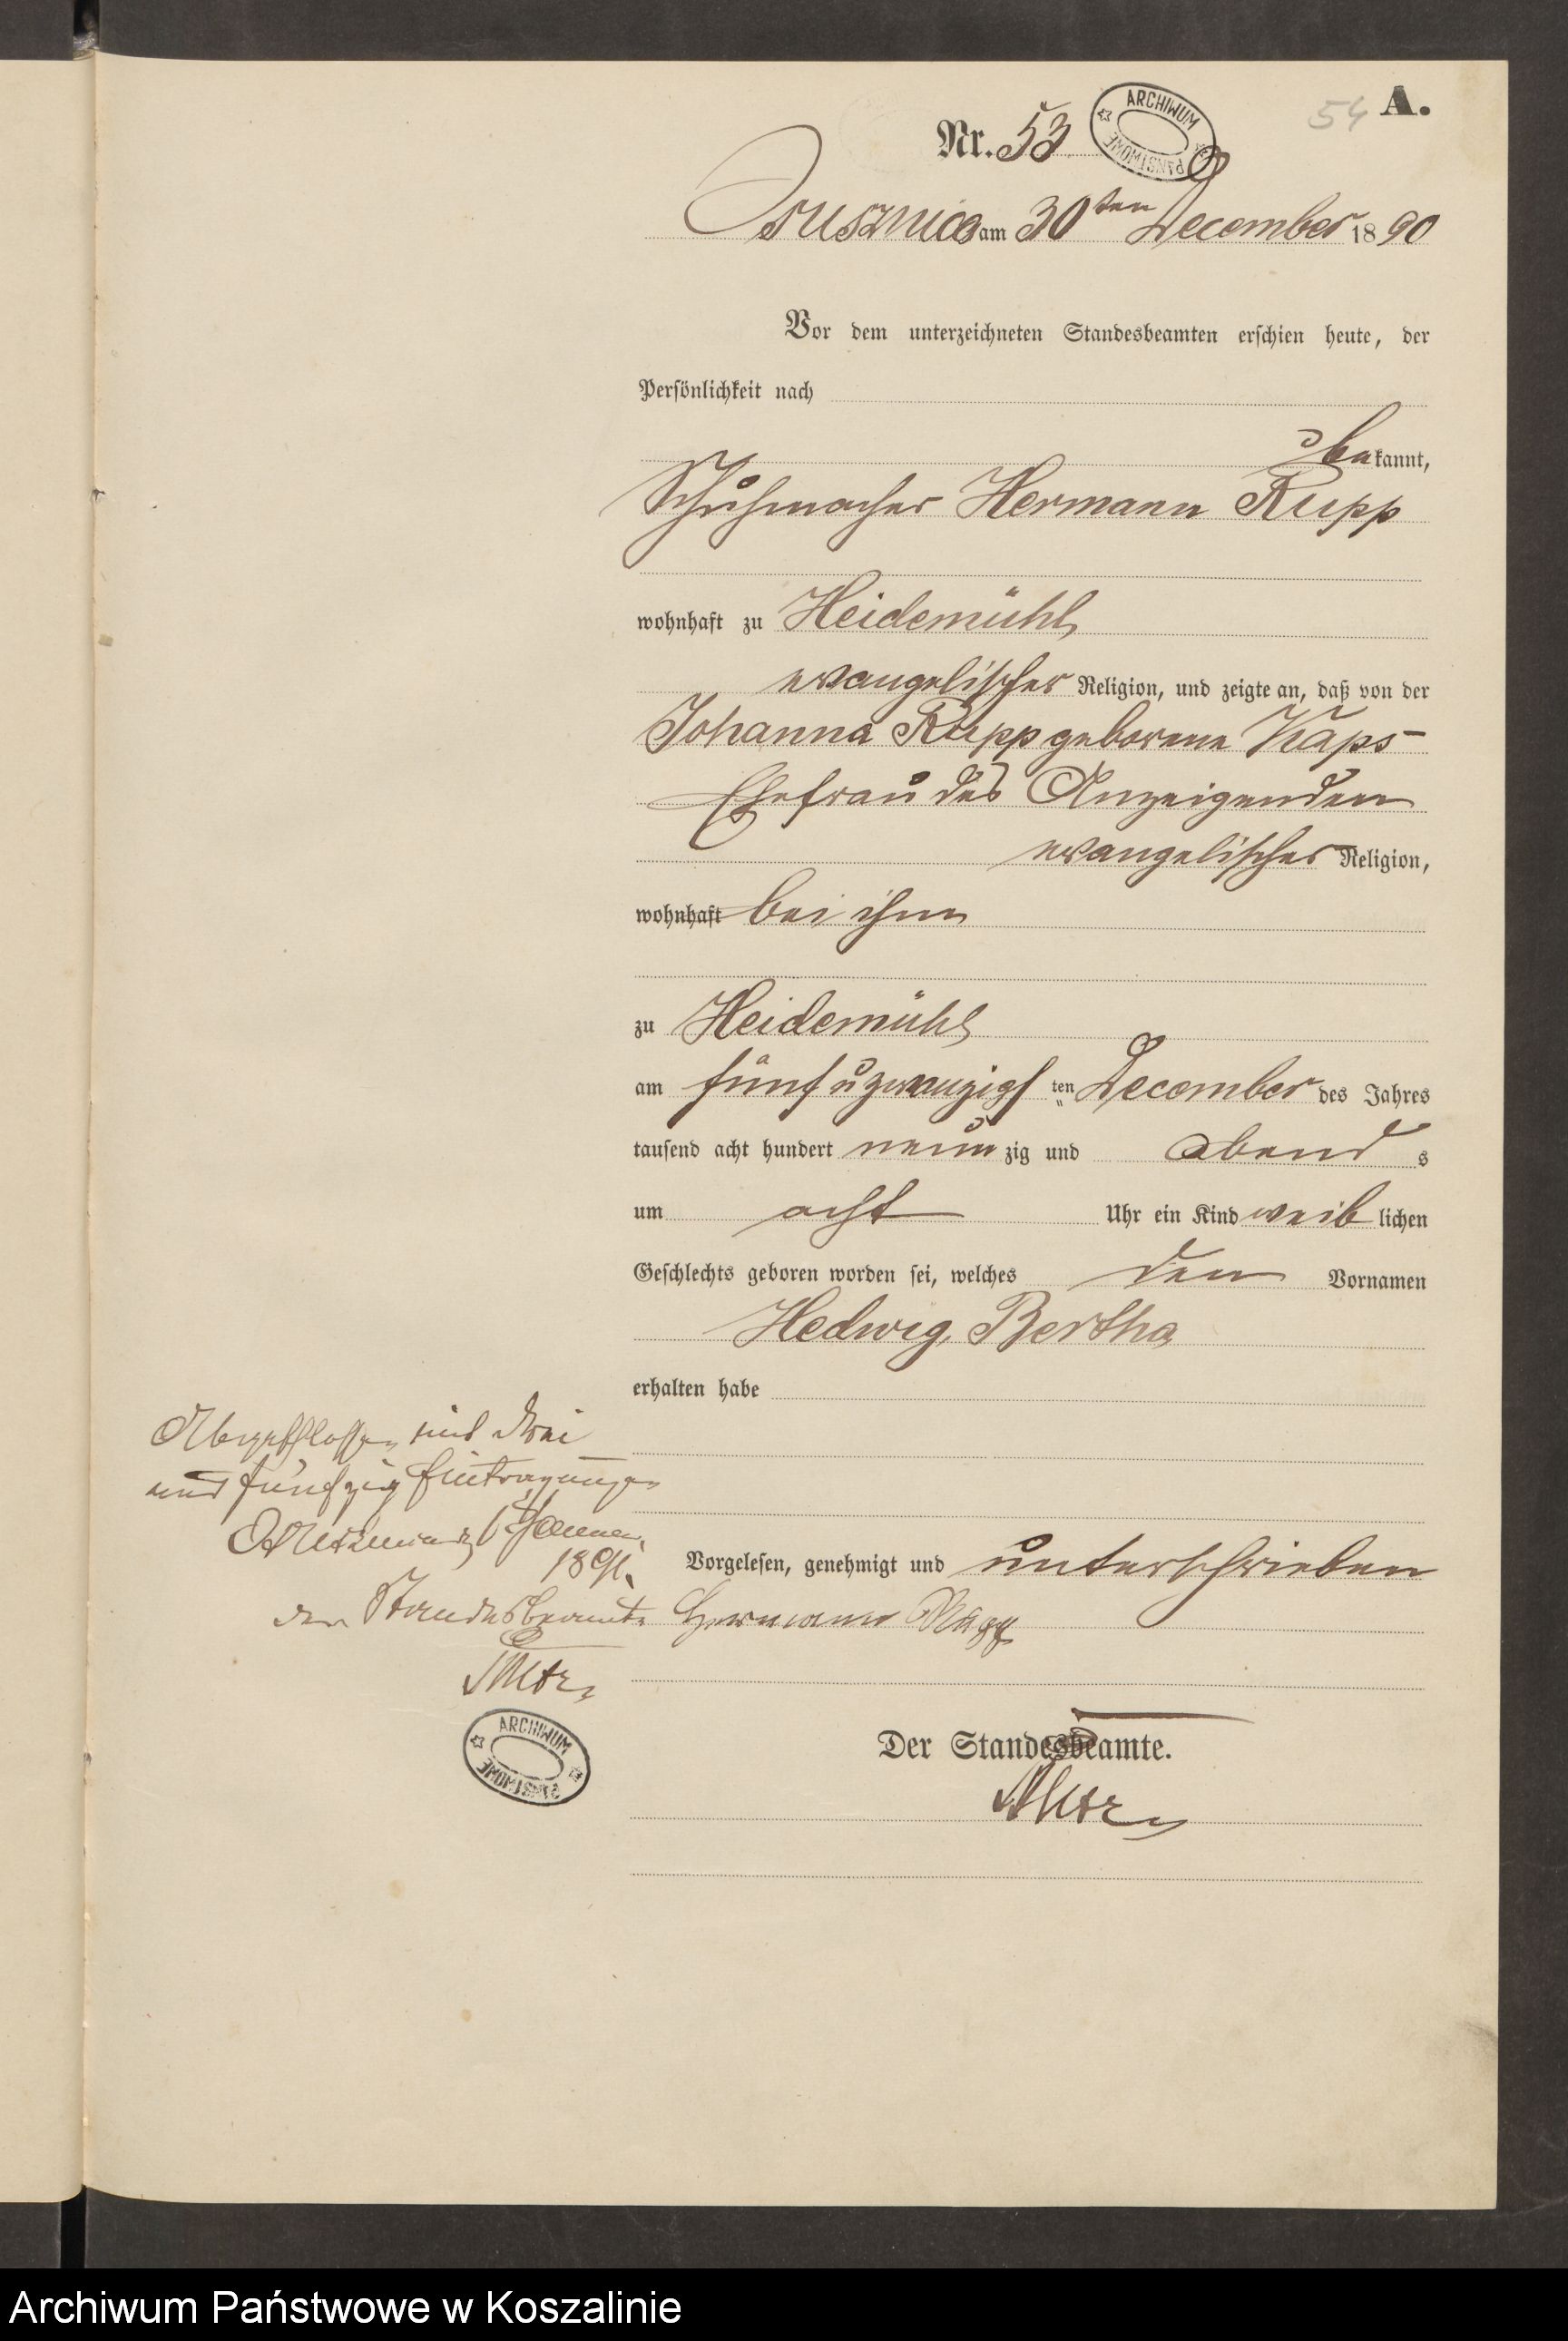 A.
54
Nr. 53
ARCHIWUM PAŃSTWOWE
Osusznica am 30ten December 1890
Vor dem unterzeichneten Standesbeamten erschien heute, der
Persönlichkeit nach
bekannt,
Schuhmacher Hermann Rupp
wohnhaft zu Heidemühl
evangelischer Religion, und zeigte an, daß von der
Johanna Rupp geborene Kaps
Ehefrau des Anzeigenden
evangelischer Religion,
wohnhaft bei ihm
zu Heidemühl
am fünf u zwanzigsten December des Jahres
tausend acht hundert neunzig und abends
um acht Uhr ein Kind weiblichen
Geschlechts geboren worden sei, welches den Vornamen
Hedwig, Bertha
erhalten habe
Abgeschlossen mit drei
und fünfzig Eintragungen
Osusznica, Januar
1891.
der Standesbeamte
Vorgelesen, genehmigt und unterschrieben
Hermann Rupp
ARCHIWUM PAŃSTWOWE
Der Standesbeamte.
Archiwum Państwowe w Koszalinie